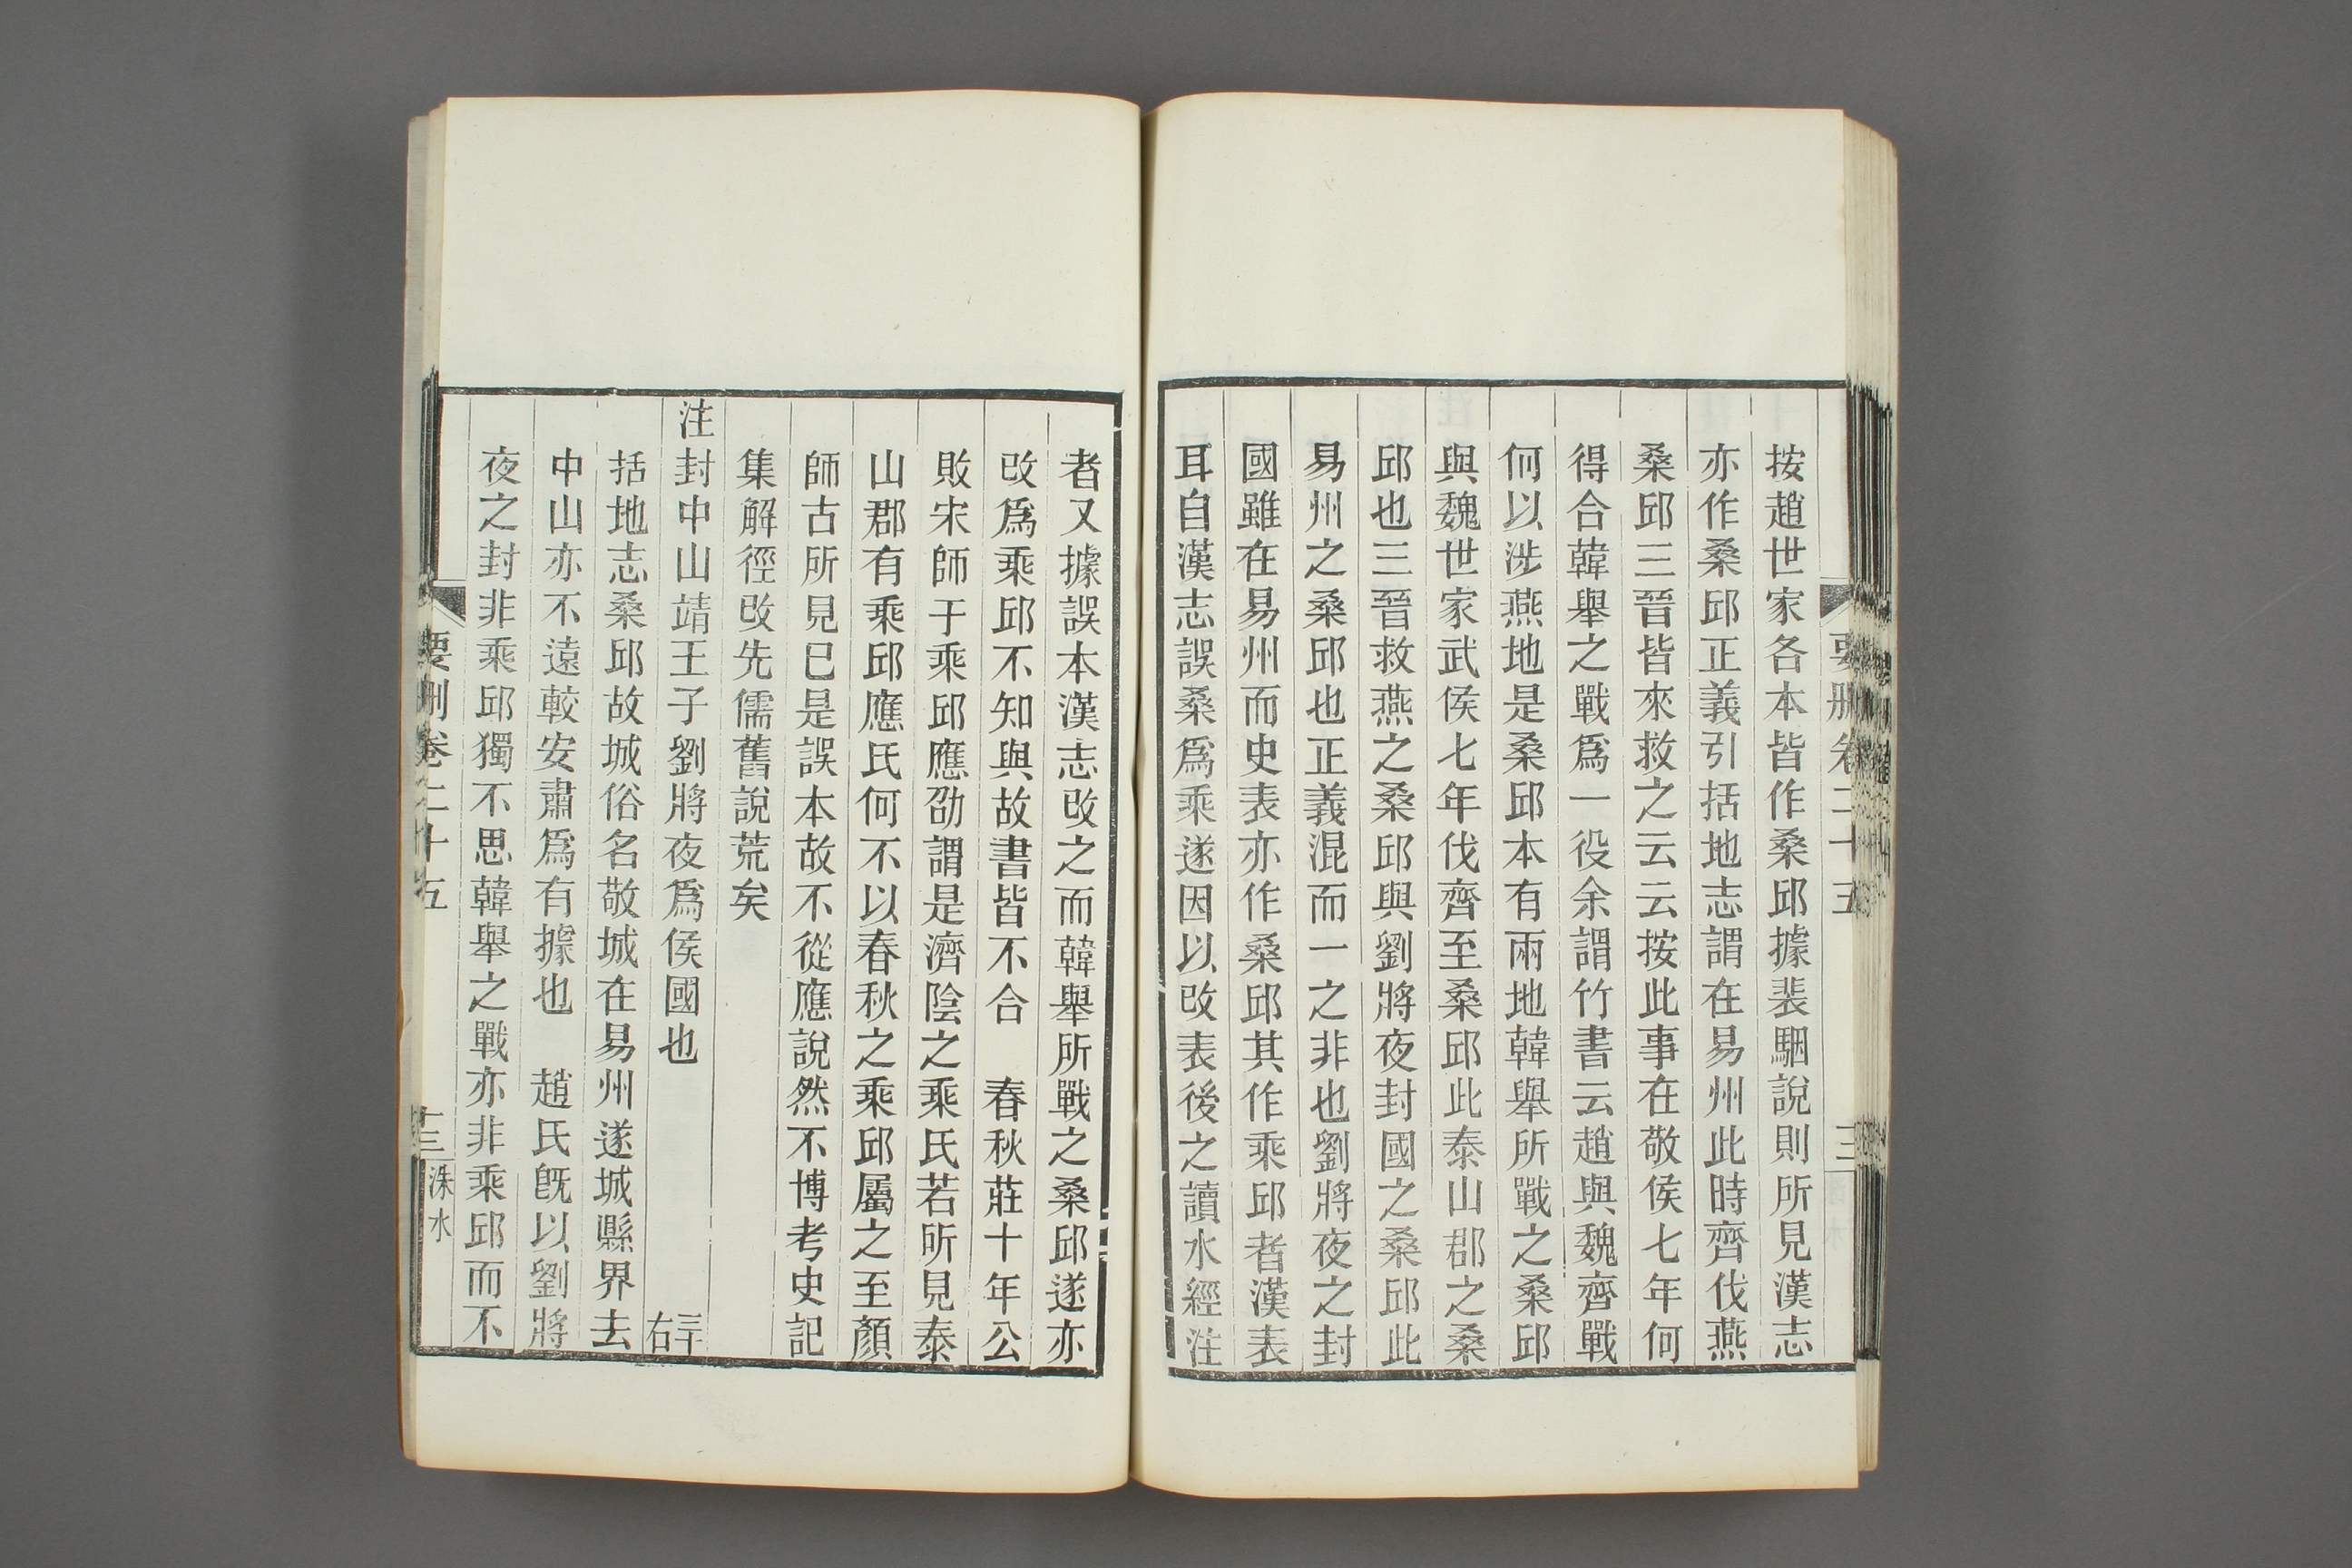 按趙世家各本皆作桑邱據裴駰說則所見漢志
亦作桑邱正義引括地志謂在易州此時齊伐燕
桑邱三晉皆來救之云云按此事在敬侯七年何
得合韓舉之戰爲一役余謂竹書云趙與魏齊戰
何以涉燕地是桑邱本有兩地韓舉所戰之桑邱
與魏世家武侯七年伐齊至桑邱此泰山郡之桑
邱也三晉救燕之桑邱與劉將夜封國之桑邱此
易州之桑邱也正義混而一之非也劉將夜之封
國雖在易州而史表亦作桑邱其作乘邱者漢表
耳自漢志誤桑爲乘遂因以改表後之讀水經注
者又據誤本漢志改之而韓舉所戰之桑邱遂亦
改爲乘邱不知與故書皆不合　春秋莊十年公
敗宋師于乘邱應劭謂是濟陰之乘氏若所見泰
山郡有乘邱應氏何不以春秋之乘邱屬之至顏
師古所見已是誤本故不從應說然不博考史記
集解徑改先儒舊說荒矣
注封中山靖王子劉將夜爲侯國也　三十右
括地志桑邱故城俗名敬城在易州遂城縣界去
中山亦不遠較安肅爲有據也　趙氏旣以劉將
夜之封非乘邱獨不思韓舉之戰亦非乘邱而不
要刪卷二十五　三　洙水